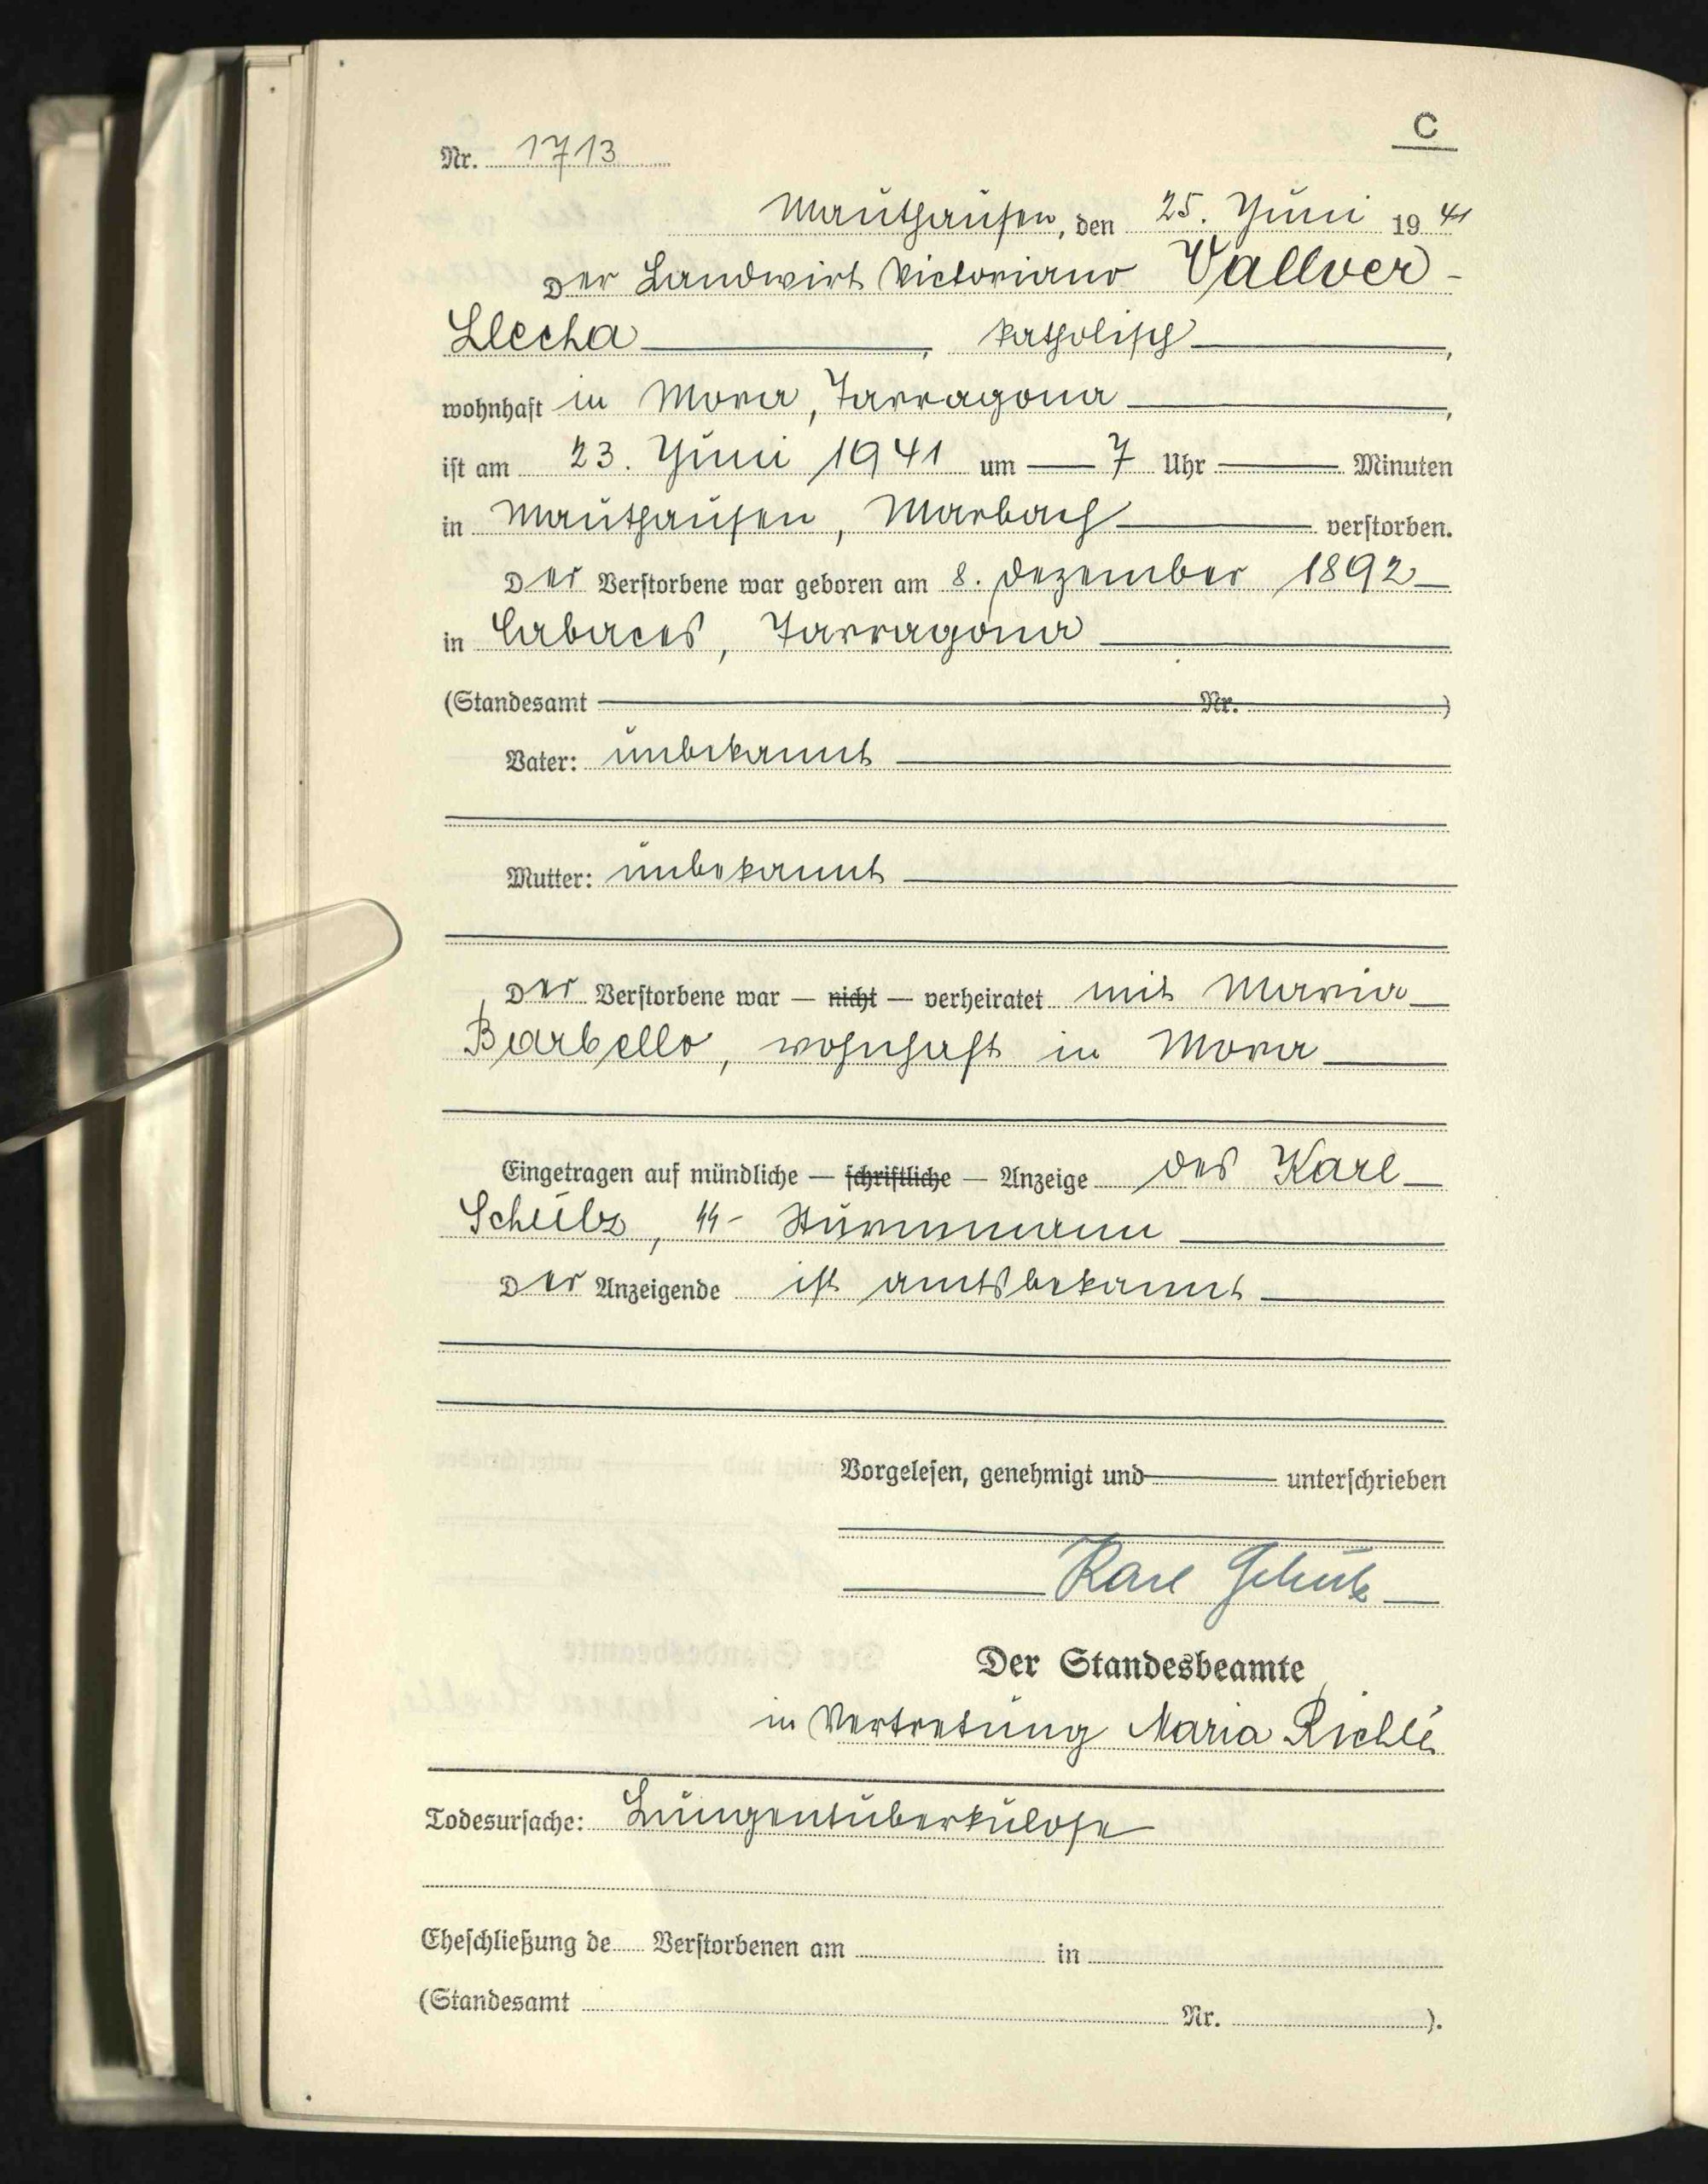 C
Nr. 1713
Mauthausen, den 25. Juni 1941
Der Landwirt Victoriano Vallver-
Llecha, katholisch,
wohnhaft in Mora, Tarragona,
ist am 23. Juni 1941 um 7 Uhr Minuten
in Mauthausen, Marbach verstorben.
Der Verstorbene war geboren am 8. Dezember 1892
in Cabaces, Tarragona
(Standesamt Nr. )
Vater: unbekannt
Mutter: unbekannt
Der Verstorbene war — nicht — verheiratet mit Maria
Barbello, wohnhaft in Mora
Eingetragen auf mündliche — schriftliche — Anzeige des Karl
Schulz, SS- Sturmmann
Der Anzeigende ist amtsbekannt
Vorgelesen, genehmigt und unterschrieben
Karl Schulz
Der Standesbeamte
in Vertretung Maria
Todesursache: Lungentuberkulose
Eheschließung de Verstorbenen am in
(Standesamt Nr. ).